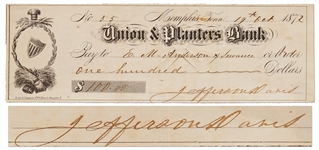 No 55 Memphis, Tenn 19th Oct 1872
Union & Planters Bank
Pay to E. M. Anderson & or Order
One hundred Dollars
$ 100.00 Jefferson Davis
Jefferson Davis